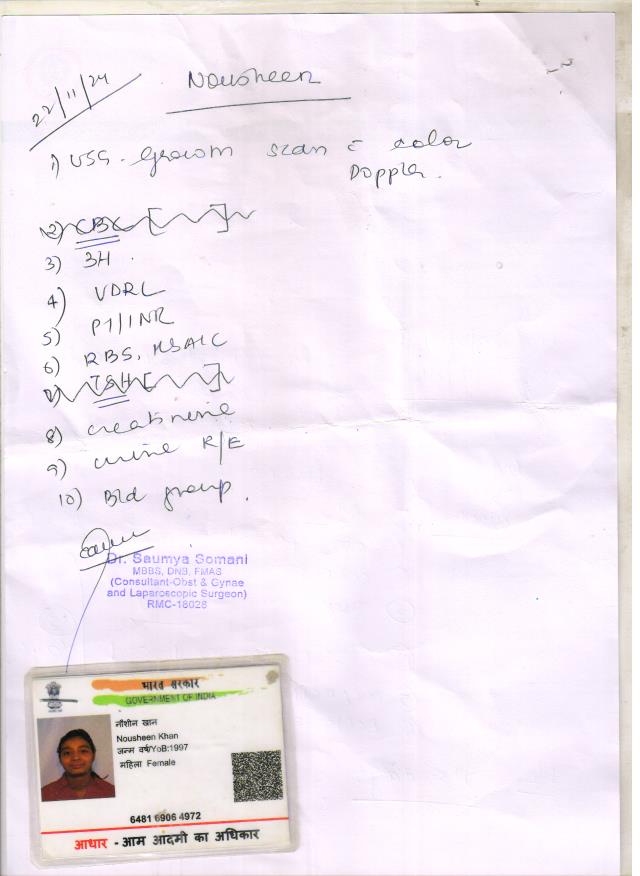 22/11/24
Nousheen
1) USG. Growth scan c̄ color
Doppler.
2) CBC
3) 3H.
4) VDRL
5) PT/INR
6) RBS, HBA1C
7) TSH
8) creatinine
9) urine R/E
10) Bld group.
Dr. Saumya Somani
MBBS, DNB, FMAS
(Consultant-Obst & Gynae
and Laparoscopic Surgeon)
RMC-18028
भारत सरकार
GOVERNMENT OF INDIA
नौशीन खान
Nousheen Khan
जन्म वर्ष/YoB:1997
महिला Female
6481 6906 4972
आधार - आम आदमी का अधिकार